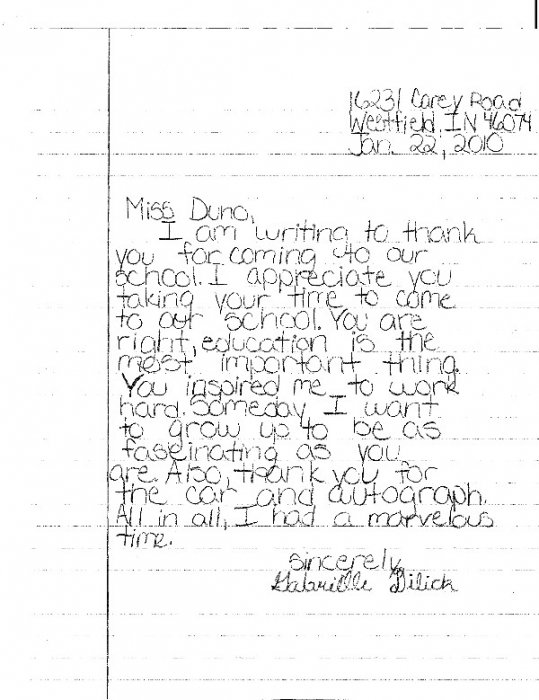 16231 Carey Road
Westfield, IN 46074
Jan. 22, 2010
Miss Duno,
I am writing to thank
you for coming to our
school. I appreciate you
taking your time to come
to our school. You are
right, education is the
most important thing.
You inspired me to work
hard. Someday, I want
to grow up to be as
fascinating as you
are. Also, thank you for
the car and autograph.
All in all, I had a marvelous
time.
Sincerely,
Gabrielle Dilick